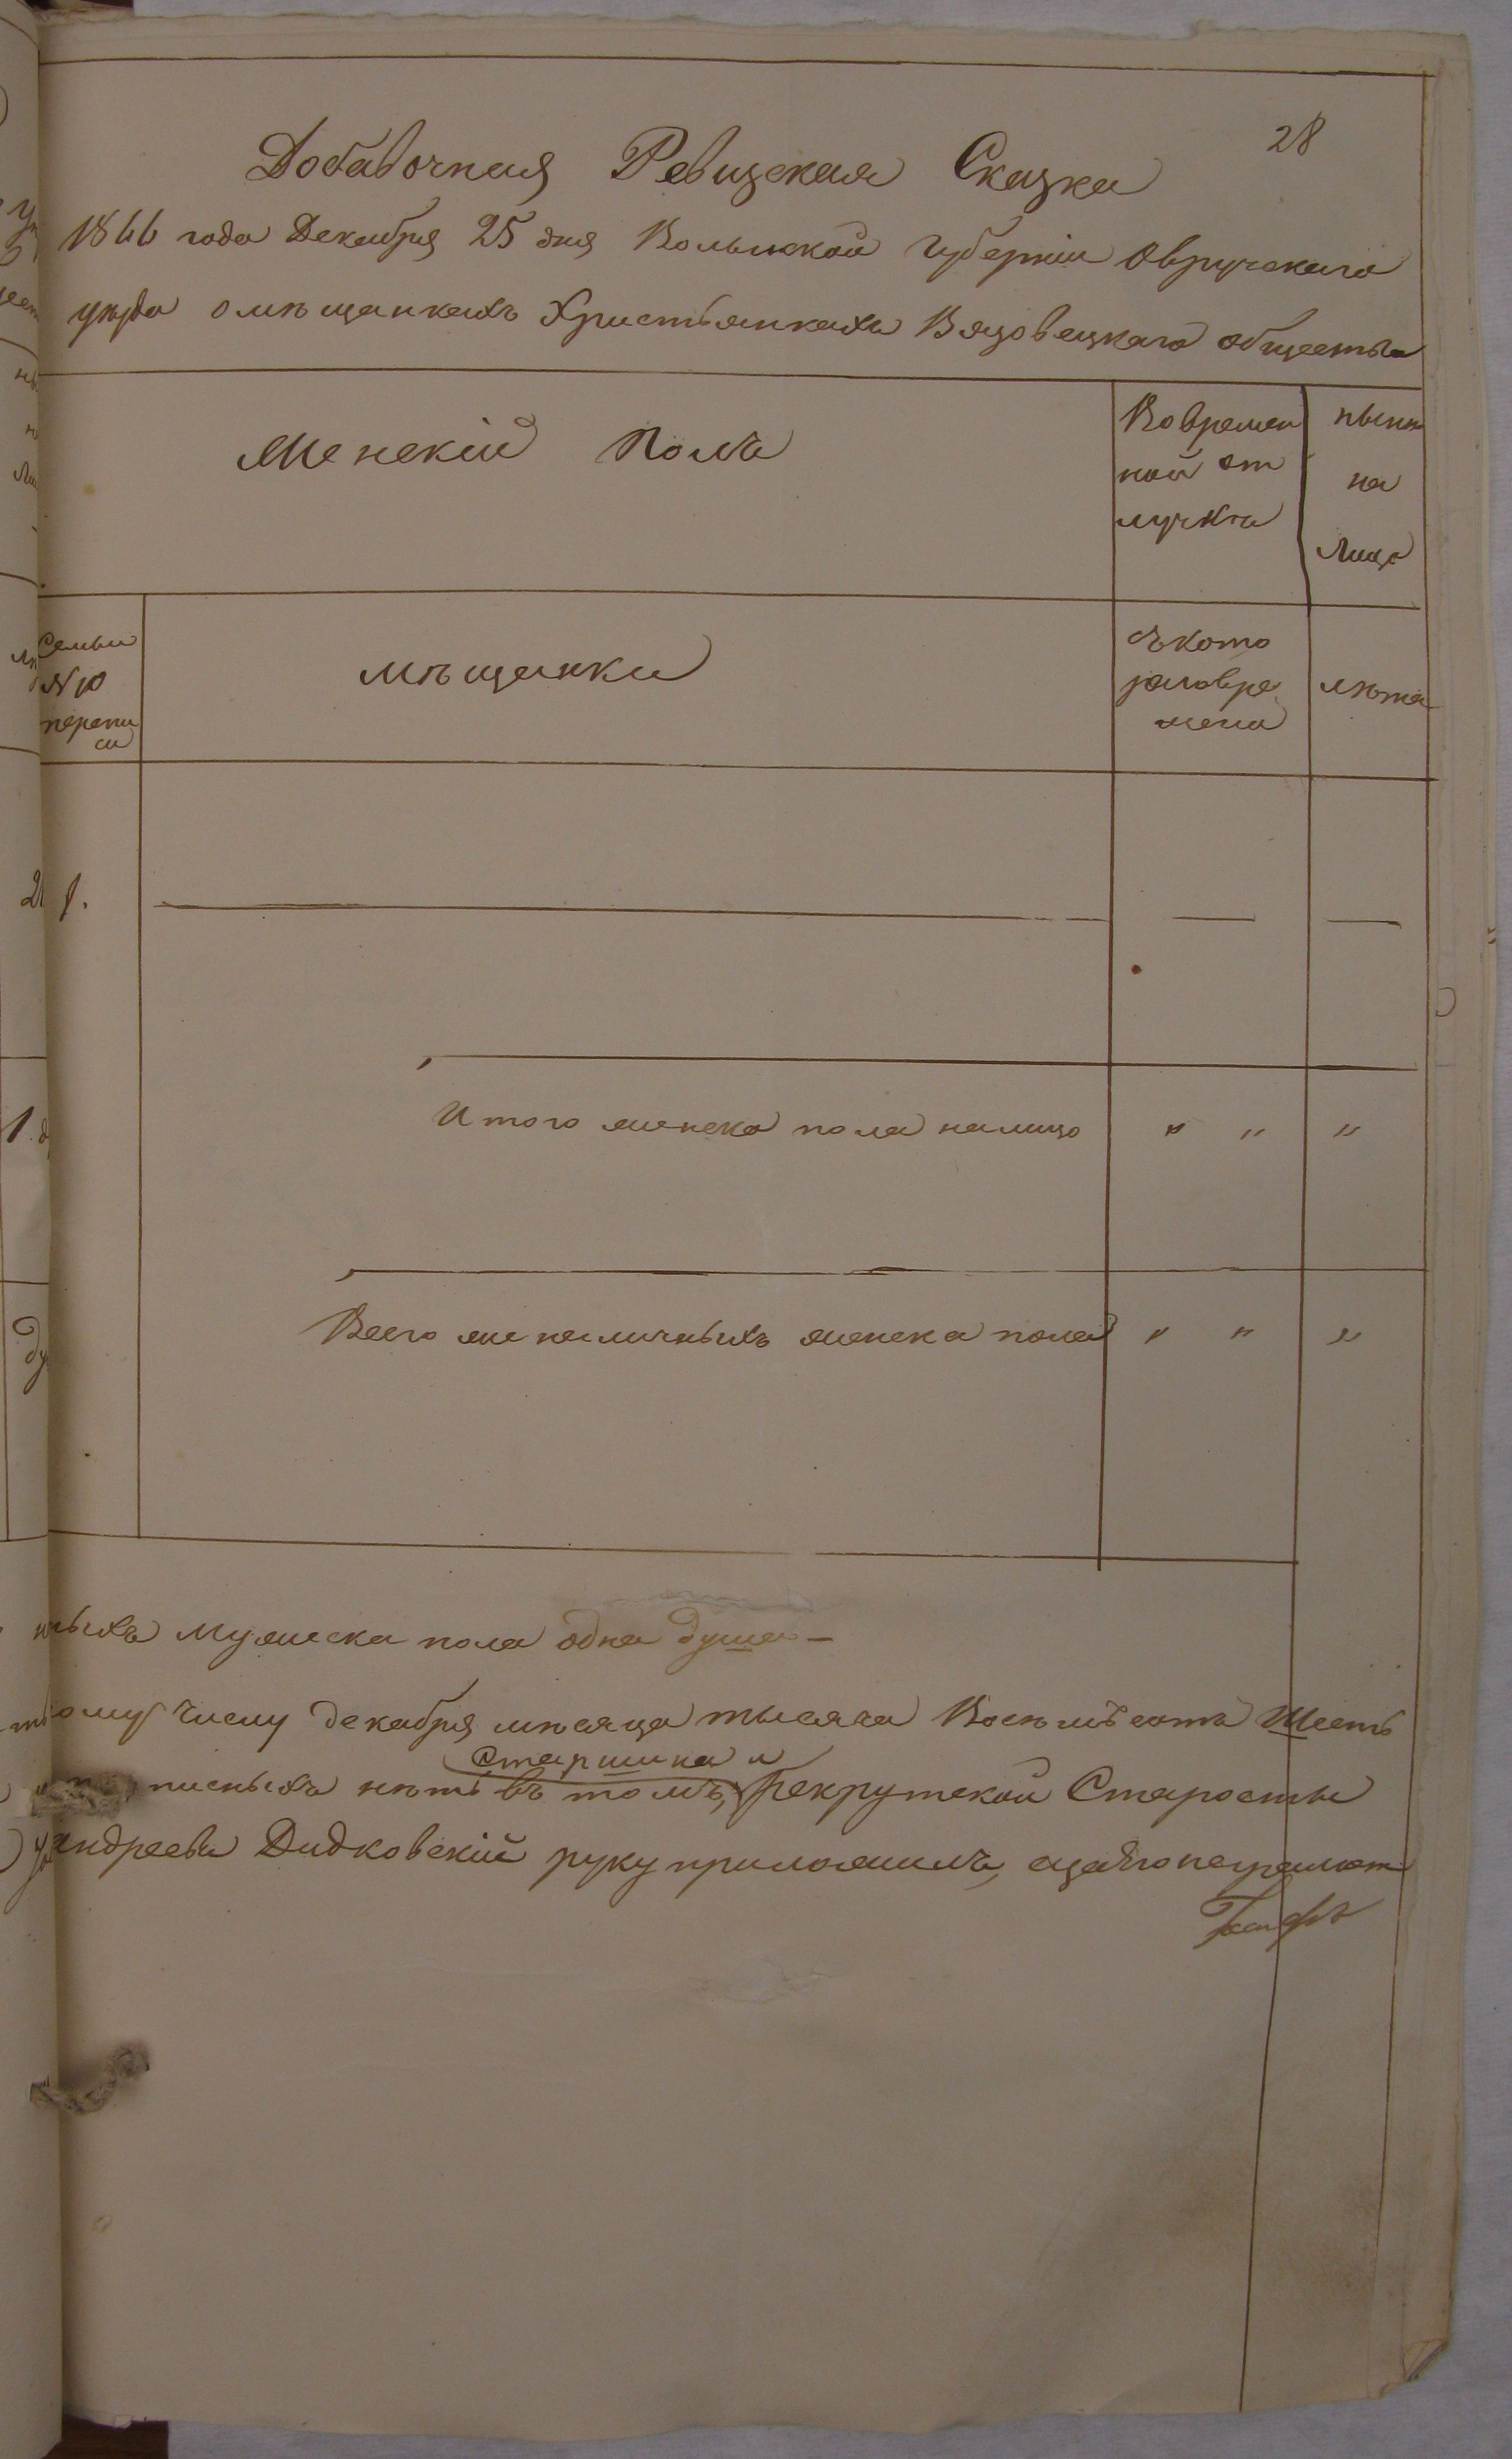 28
Добавочная Ревизская Сказка
1866 года Декабря 25 дня Волынской губерніи Овручскаго
уѣзда о мѣщанкахъ Христьянкахъ Вязовецкаго общества
Женскій Полъ
Во времен
ной от
лучкѣ
нынѣ
на
лицо
Семьи
№ 10
перепи
си
мѣщанки
съ кото
раго вре
мени
лѣта
1.
Итого женска пола налицо " " "
Всего же наличныхъ женска пола " " "
ныхъ мужеска пола одна душа
тому числу декабря мѣсяца тысяча Восемьсотъ Шесть
Старшина и
писныхъ нѣтъ въ томъ, рекрутской Старосты
андреевъ Дидковскій руку приложилъ, а за его неграмот